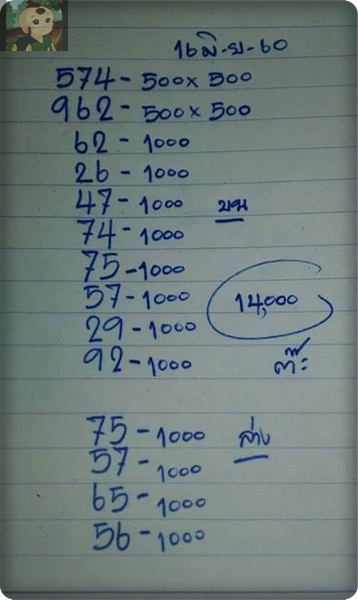 16มิ-ย-60
574-500x500
962-500x500
62-1000
26-1000
47-1000 บน
74-1000
75-1000
57-1000 14,000
29-1000
92-1000
75-1000 ล่าง
57-1000
65-1000
56-1000